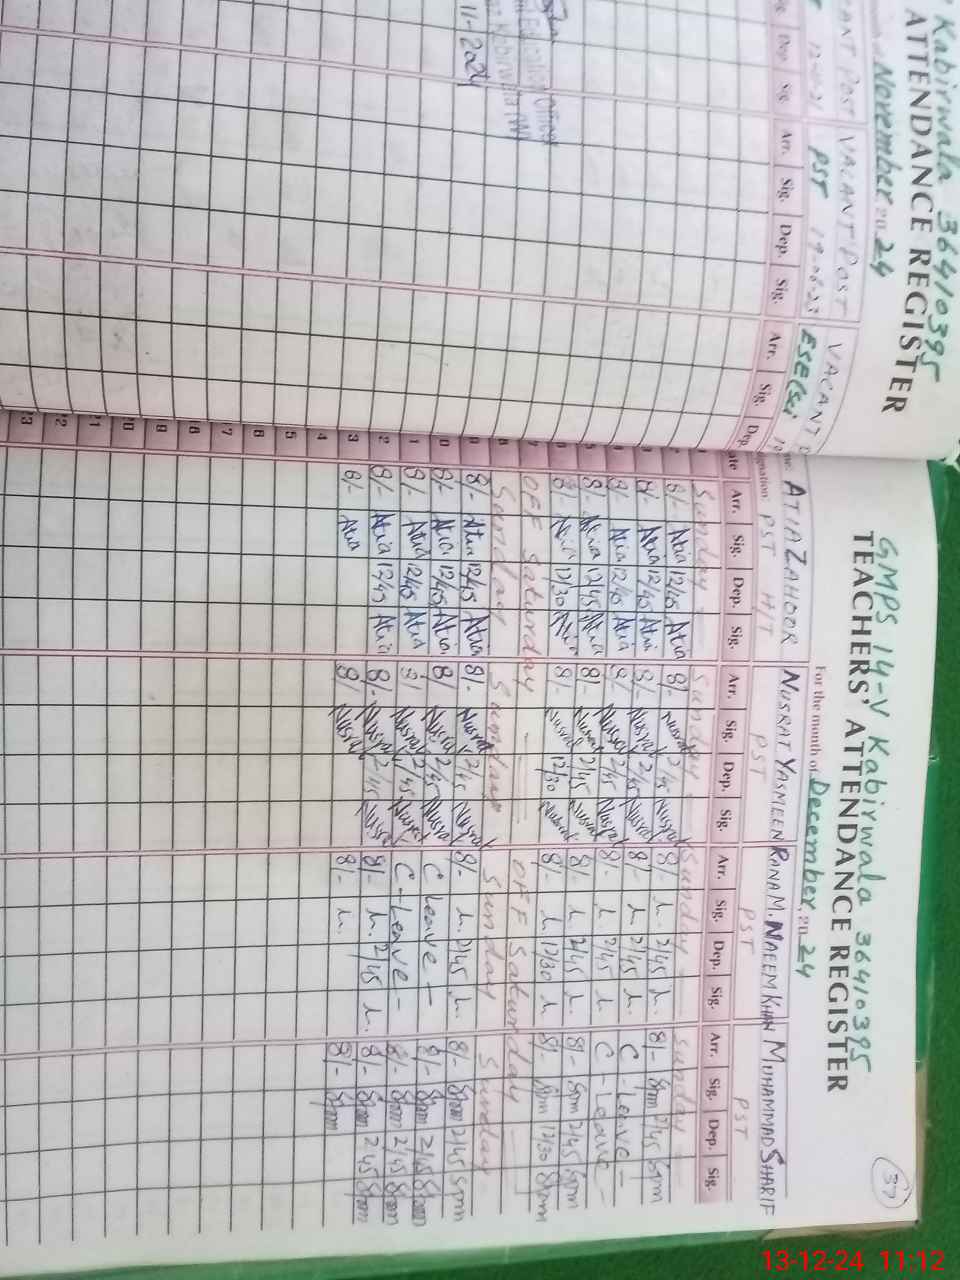 Kabirwala 36410395
ATTENDANCE REGISTER
November 2024
VACANT POST VACANT POST VACANT
PST 19-06-23 ESE(Sci
Arr. Sig. Dep. Sig. Arr. Sig. Dep.
11-2024
37
GMPS 14-V Kabirwala 36410395
TEACHERS' ATTENDANCE REGISTER
For the month of December 2024
ATIA ZAHOOR NUSRAT YASMEEN RANA M. NAEEM KHAN MUHAMMAD SHARIF
PST H/T PST PST PST
Arr. Sig. Dep. Sig. Arr. Sig. Dep. Sig. Arr. Sig. Dep. Sig. Arr. Sig. Dep. Sig.
Sunday Sunday Sunday Sunday
8/- Atia 12/45 Atia 8/- Nusrat 2/45 Nusrat 8/- 2/45 8/- 2/45
8/- Atia 12/45 Atia 8/- Nusrat 2/45 Nusrat 8/- 2/45 C-Leave-
8/- Atia 12/45 Atia 8/- Nusrat 2/45 Nusrat 8/- 2/45 C-Leave-
8/- Atia 12/45 Atia 8/- Nusrat 2/45 Nusrat 8/- 2/45 8/- 2/45
8/- Atia 12/30 Atia 8/- Nusrat 12/30 Nusrat 8/- 12/30 8/- 12/30
7 OFF Saturday OFF Saturday
8 Sunday Sunday Sunday Sunday
9 8/- Atia 12/45 Atia 8/- Nusrat 2/45 Nusrat 8/- 2/45 8/- 2/45
0 8/- Atia 12/45 Atia 8/ Nusrat 2/45 Nusrat C Leave- 8/- 2/45
1 8/- Atia 12/45 Atia 8/ Nusrat 2/45 Nusrat C-Leave- 8/- 2/45
2 8/- Atia 12/45 Atia 8/- Nusrat 2/45 Nusrat 8/- 2/45 8/- 2 45
3 8/- Atia 8/- Nusrat 8/- 8/-
4
5
6
7
18
19
20
21
22
23
13-12-24 11:12